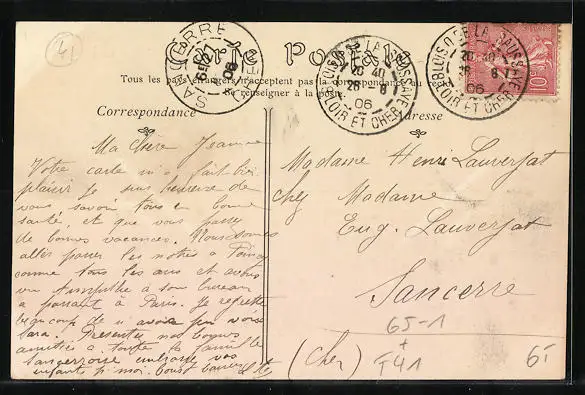 41
Carte Postale
Tous les pays étrangers n'acceptent pas la correspondance au
Se renseigner à la poste.
SANCERRE
CHER
BLOIS LA CHAUSSÉE
LOIR ET CHER
20 40
28 8
06
BLOIS LA CHAUSSÉE
LOIR ET CHER
20 40
28 8
06
10
Correspondance
Adresse
Ma chère Jeanne
Votre carte m'a fait bien
plaisir je suis heureuse de
vous savoir tous en bonne
santé, et que vous passez
de bonnes vacances. Nous sommes
allés passer les nôtres à
comme tous les ans et avons
vu à son bureau
en passant à Paris. Je regrette
beaucoup de n'avoir pu voir
Présentez nos bonnes
amitiés à toute la famille
embrasse vos
enfants p. moi
Madame Henri Lauverjat
chez Madame
Eug. Lauverjat
Sancerre
(Cher)
65-1
+
T41
6,-